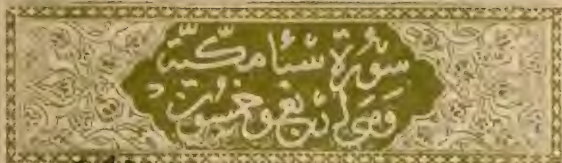 سورة سبأ مكية
وهي أربع وخمسون